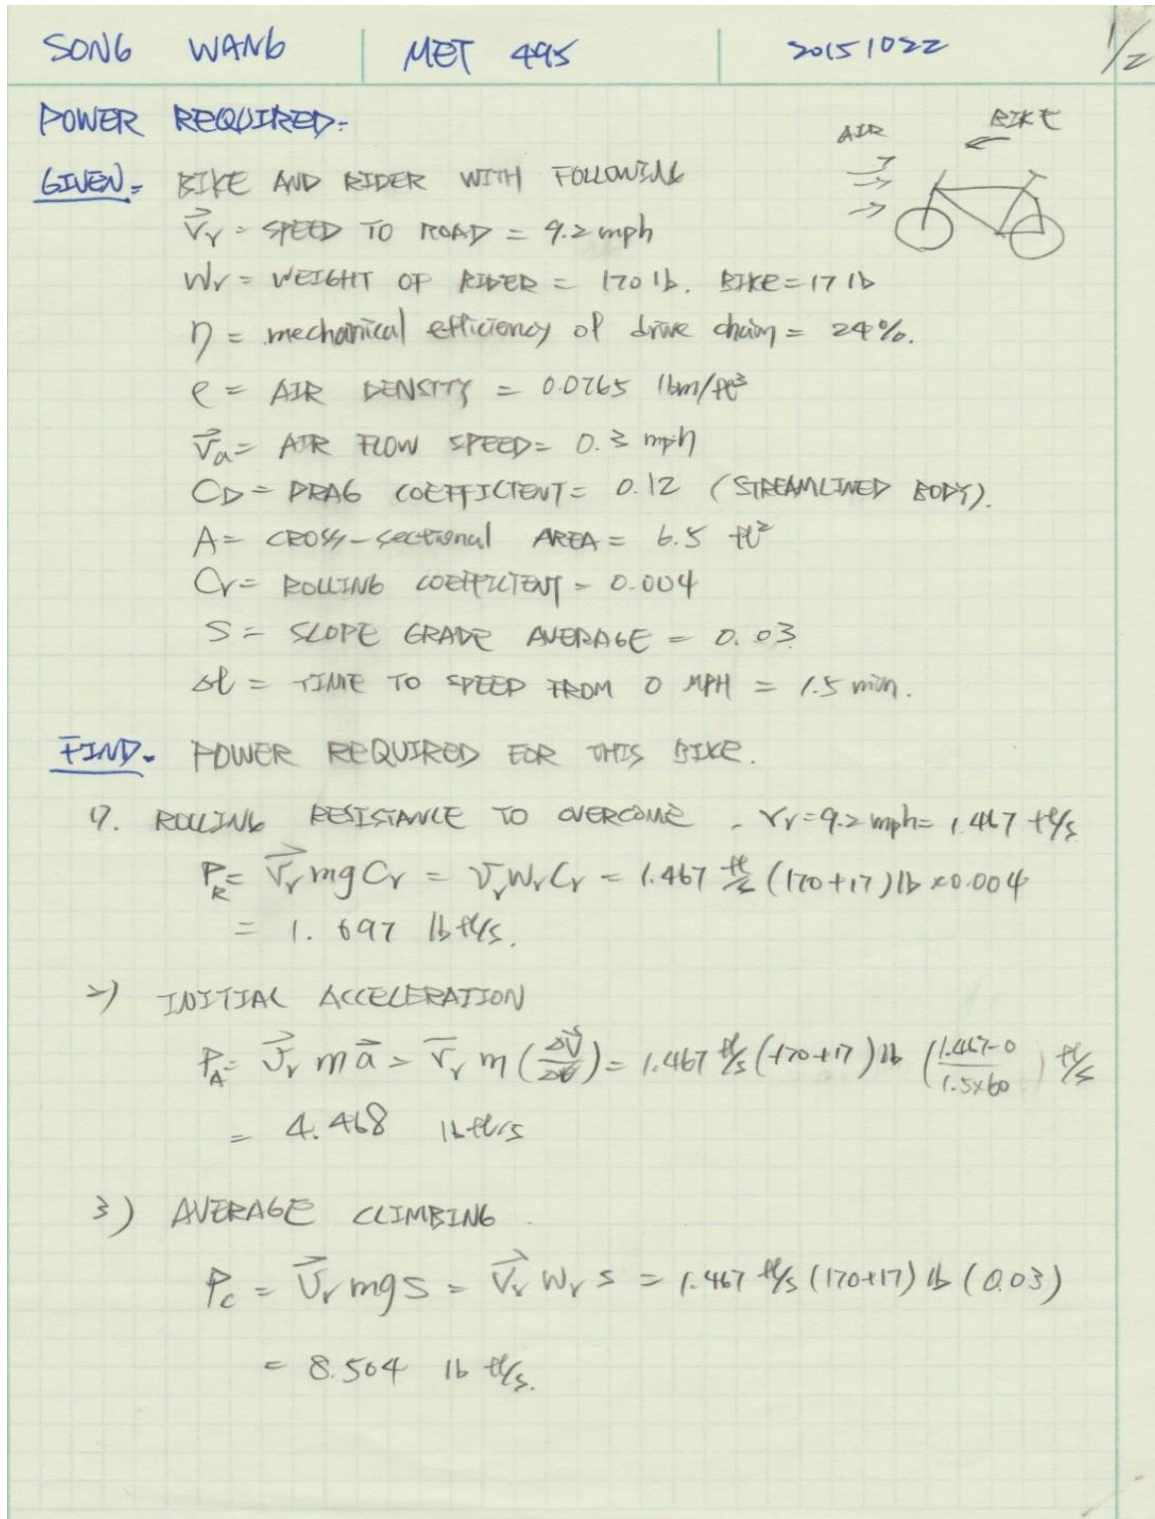 SONG WANG MET 495 20151022 1/2
POWER REQUIRED:
AIR BIKE
GIVEN: BIKE AND RIDER WITH FOLLOWING
V⃗r = SPEED TO ROAD = 9.2 mph
Wr = WEIGHT OF RIDER = 170 lb. BIKE = 17 lb
η = mechanical efficiency of drive chain = 24%.
ρ = AIR DENSITY = 0.0765 lbm/ft³
V⃗a = AIR FLOW SPEED = 0.3 mph
CD = DRAG COEFFICIENT = 0.12 (STREAMLINED BODY).
A = CROSS-sectional AREA = 6.5 ft²
Cr = ROLLING COEFFICIENT = 0.004
S = SLOPE GRADE AVERAGE = 0.03
Δt = TIME TO SPEED FROM 0 MPH = 1.5 min.
FIND. POWER REQUIRED FOR THIS BIKE.
1). ROLLING RESISTANCE TO OVERCOME. Vr = 9.2 mph = 1.467 ft/s
PR = V⃗r mg Cr = Vr Wr Cr = 1.467 ft/s (170+17) lb × 0.004
= 1.697 lb ft/s.
2) INITIAL ACCELERATION
PA = V⃗r m a⃗ = V⃗r m (ΔV⃗/Δt) = 1.467 ft/s (170+17) lb (1.467-0/1.5×60) ft/s
= 4.468 lb ft/s
3) AVERAGE CLIMBING
Pc = V⃗r mg S = V⃗r Wr S = 1.467 ft/s (170+17) lb (0.03)
= 8.504 lb ft/s.